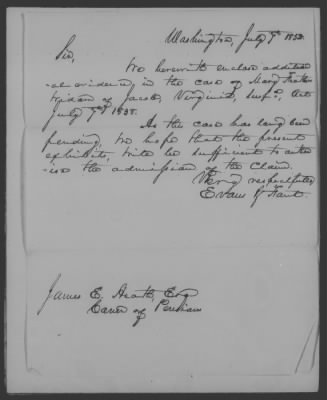 Washington, July 9th 1852.
Sir,
We herewith enclose addition-
al evidence in the case of Mary
widow of Jacob, Virginia, under Act
July 7th 1838.
As the case has long been
pending, we hope that the present
exhibits, will be sufficient to author-
ise the admission of the Claim.
Very respectfully,
Evans & Fant.
James E. Heath, Esq
Comr of Pensions